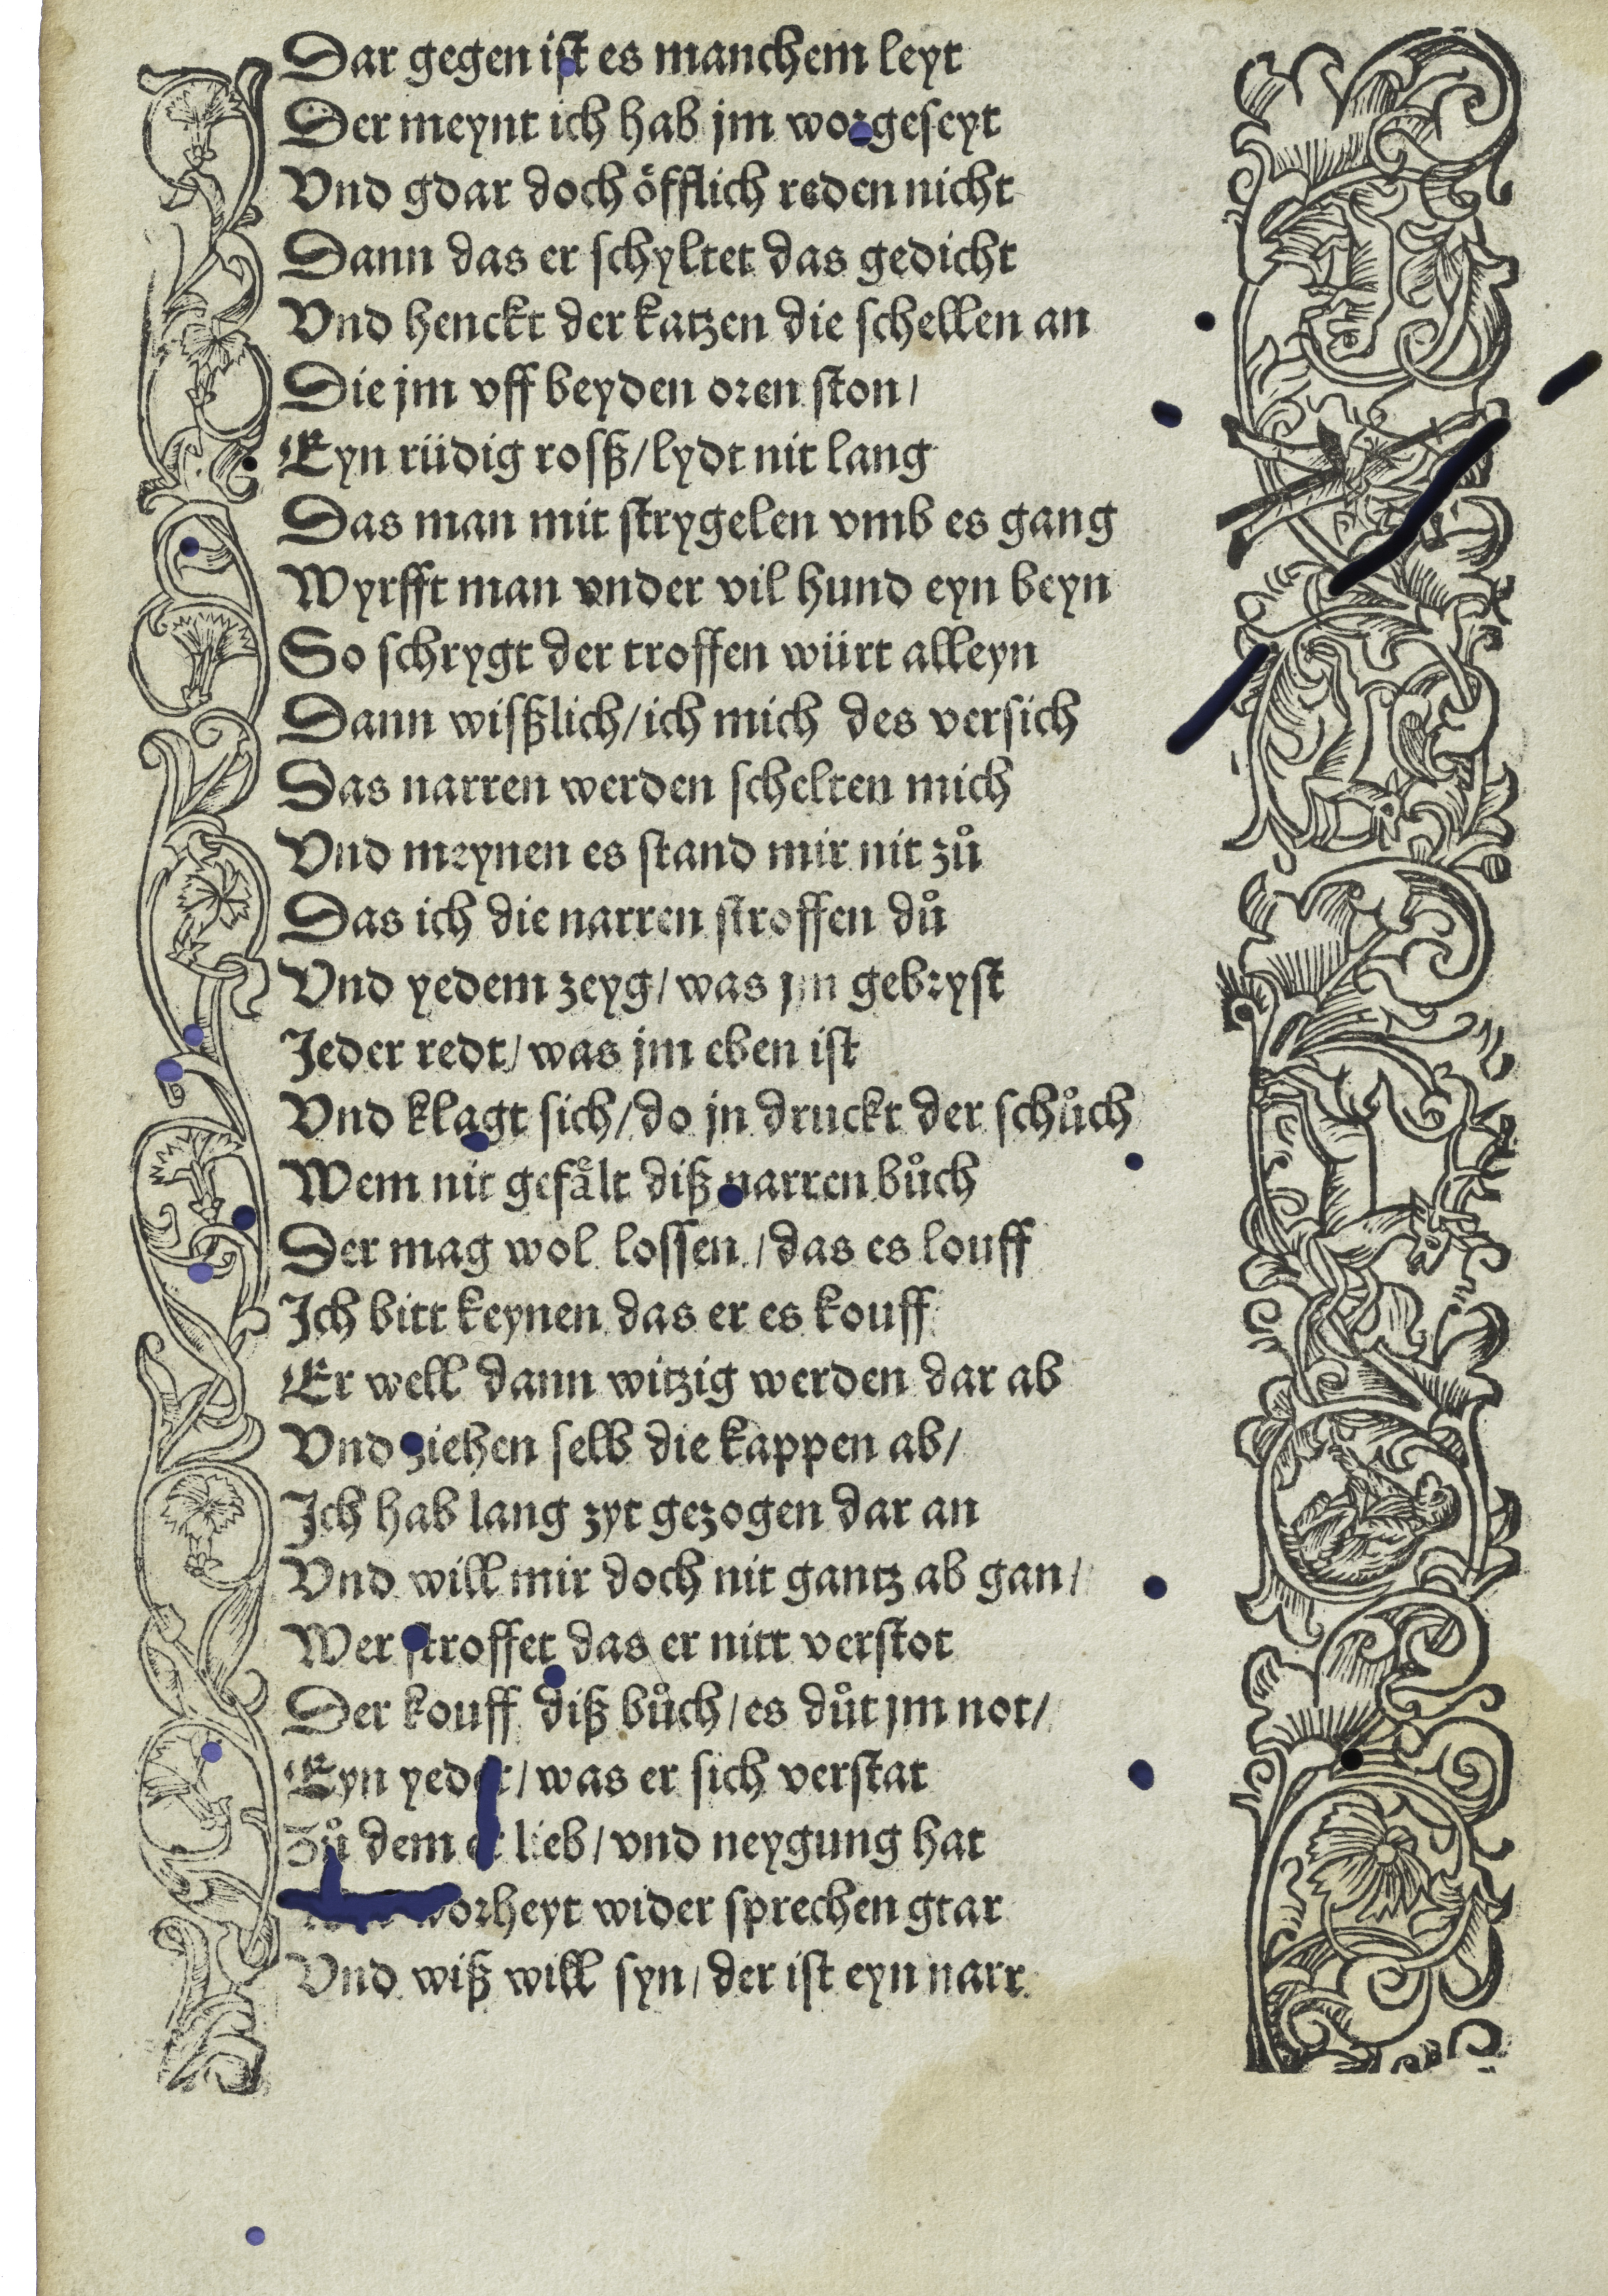 Dar gegen iſt es manchem leyt
Der meynt ich hab jm worgeſeyt
Vnd gdar doch öfflich reden nicht
Dann das er ſchyltet das gedicht
Vnd henckt der katzen die ſchellen an
Die jm vff beyden oren ſton/
Eyn rüdig roſß/lydt nit lang
Das man mit ſtrygelen vmb es gang
Wyrfft man vnder vil hund eyn beyn
So ſchrygt der troffen würt alleyn
Dann wiſßlich/ich mich des verſich
Das narren werden ſchelten mich
Vnd meynen es ſtand mir nit zů
Das ich die narren ſtroffen dů
Vnd yedem zeyg/was jm gebryſt
Jeder redt/was jm eben iſt
Vnd klagt sich/do jn druckt der ſchůch
Wem nit gefaͤlt diß narren bůch
Der mag wol loſſen/das es louff
Ich bitt keynen das er es kouff
Er well dann witzig werden dar ab
Vnd ziehen ſelb die kappen ab/
Ich hab lang zyt gezogen dar an
Vnd will mir doch nit gantz ab gan/
Wer ſtroffet das er nitt verſtot
Der kouff diß bůch/es důt jm not/
Eyn yeder/was er sich verſtat
Zů dem er lieb/vnd neygung hat
worheyt wider ſprechen gtar
Vnd wiß will ſyn/der iſt eyn narr